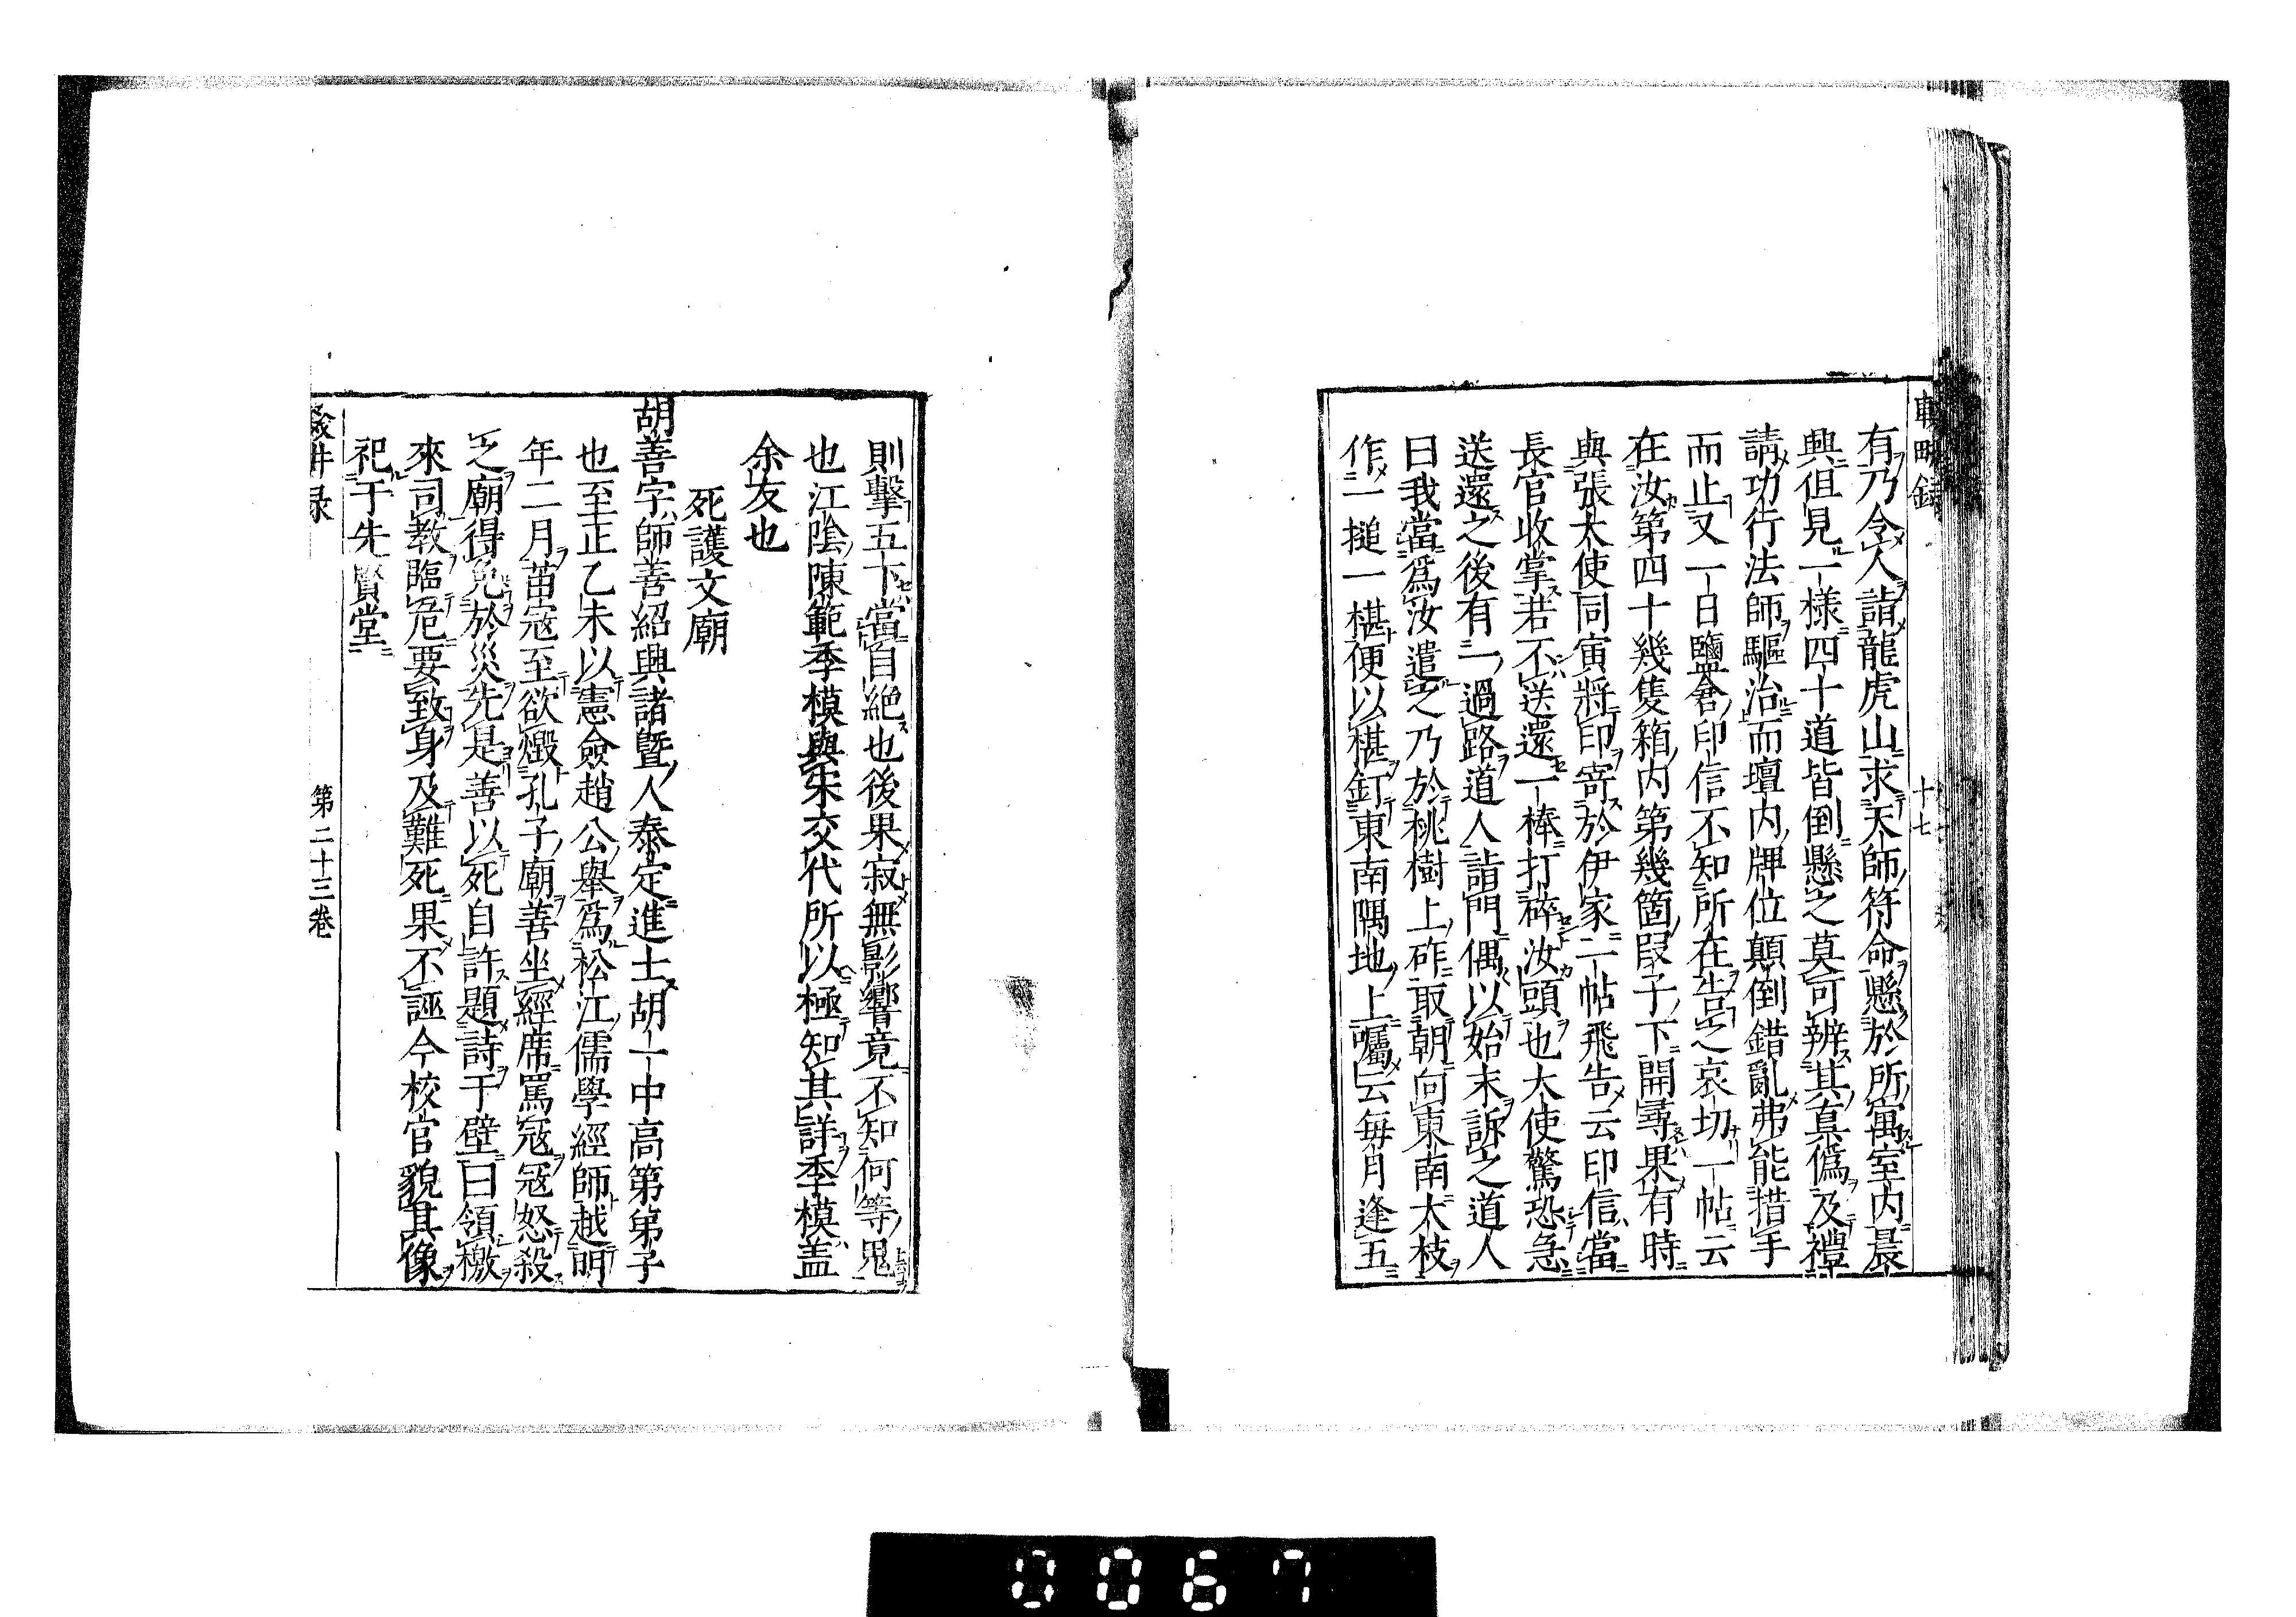 有乃令人詣龍虎山求天師符命懸於所寓室内晨
興徂見一樣四十道皆倒懸之莫可辨其真偽及禮
請功行法師驅治而壇内牌位顛倒錯亂弗能措手
而止又一日鹽倉印信不知所在告之哀切一帖云
在汝第四十幾隻箱内第幾箇段子下開尋果有時
與張大使同寅將印寄於伊家二帖飛告云印信當
長官收掌若不送還一棒打碎汝頭也大使驚恐急
送還之後有一過路道人詣門偶以始末訴之道人
曰我當爲汝遣之乃於桃樹上砟取朝向東南大枝
作一搥一椹便以椹釘東南隅地上囑云每月逢五
則擊五下當自絶也後果寂無影響竟不知何等鬼
也江陰陳範季模與宋交代所以極知其詳季模盖
余友也
死護文廟
胡善字師善紹興諸曁人泰定進士胡一中高第弟子
也至正乙未以憲僉趙公舉爲松江儒學經師越明
年二月苗寇至欲燬孔子廟善坐經席罵寇寇怒殺
之廟得免於災先是善以死自許題詩于壁曰領檄
來司教臨危要致身及難死果不誣今校官貌其像
祀于先賢堂
第二十三卷
十七